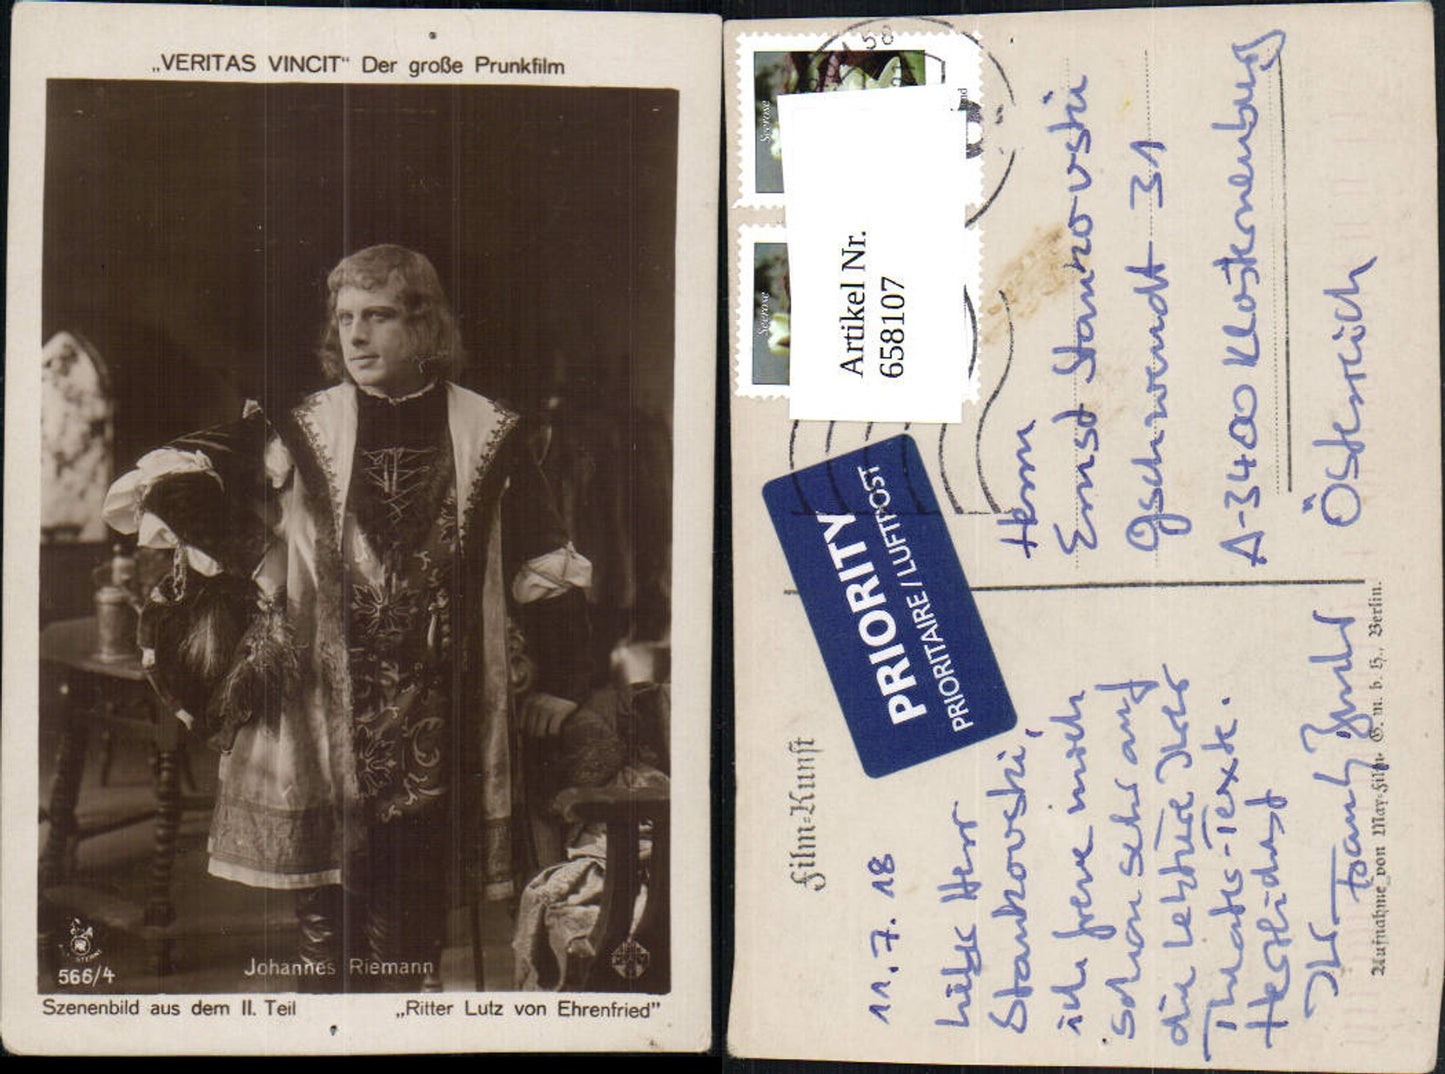 „VERITAS VINCIT“ Der große Prunkfilm
566/4
Johannes Riemann
Szenenbild aus dem II. Teil
„Ritter Lutz von Ehrenfried“
58
Seerose
Seerose
Artikel Nr.
658107
PRIORITY
PRIORITAIRE / LUFTPOST
Herrn
Ernst Stankovski
Gschwendt 31
A-3400 Klosterneuburg
Österreich
Film-Kunst
11.7.18
Herr
Stankovski,
ich freue mich
schon sehr auf
die Lektüre Ihrer
Theater-Texte.
Herzlichst
Ihr
Aufnahme von May-Film G. m. b. H., Berlin.